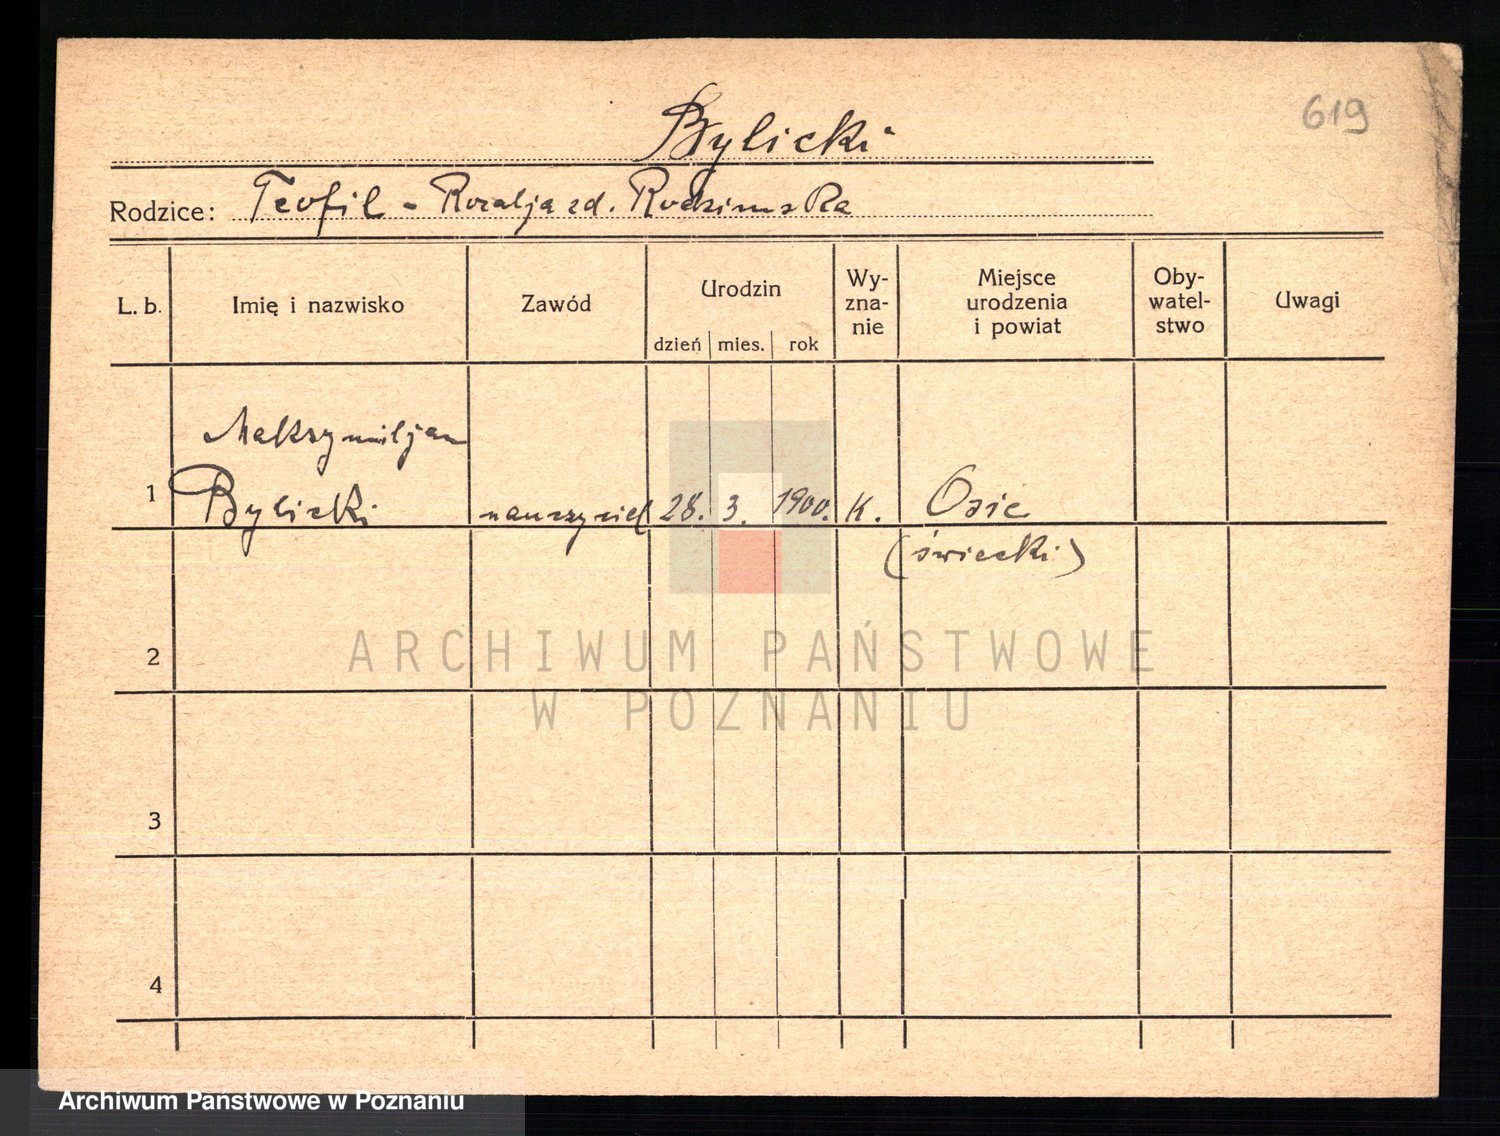 619
Bylicki
Rodzice: Teofil - Rozalja zd. Rodzimska
L. b. Imię i nazwisko Zawód Urodzin dzień mies. rok Wy-zna-nie Miejsce urodzenia i powiat Oby-watel-stwo Uwagi
Maksymiljan
1 Bylicki nauczyciel 28. 3. 1900. K. Osie
(świecki)
2
ARCHIWUM PAŃSTWOWE
W POZNANIU
3
4
Archiwum Państwowe w Poznaniu